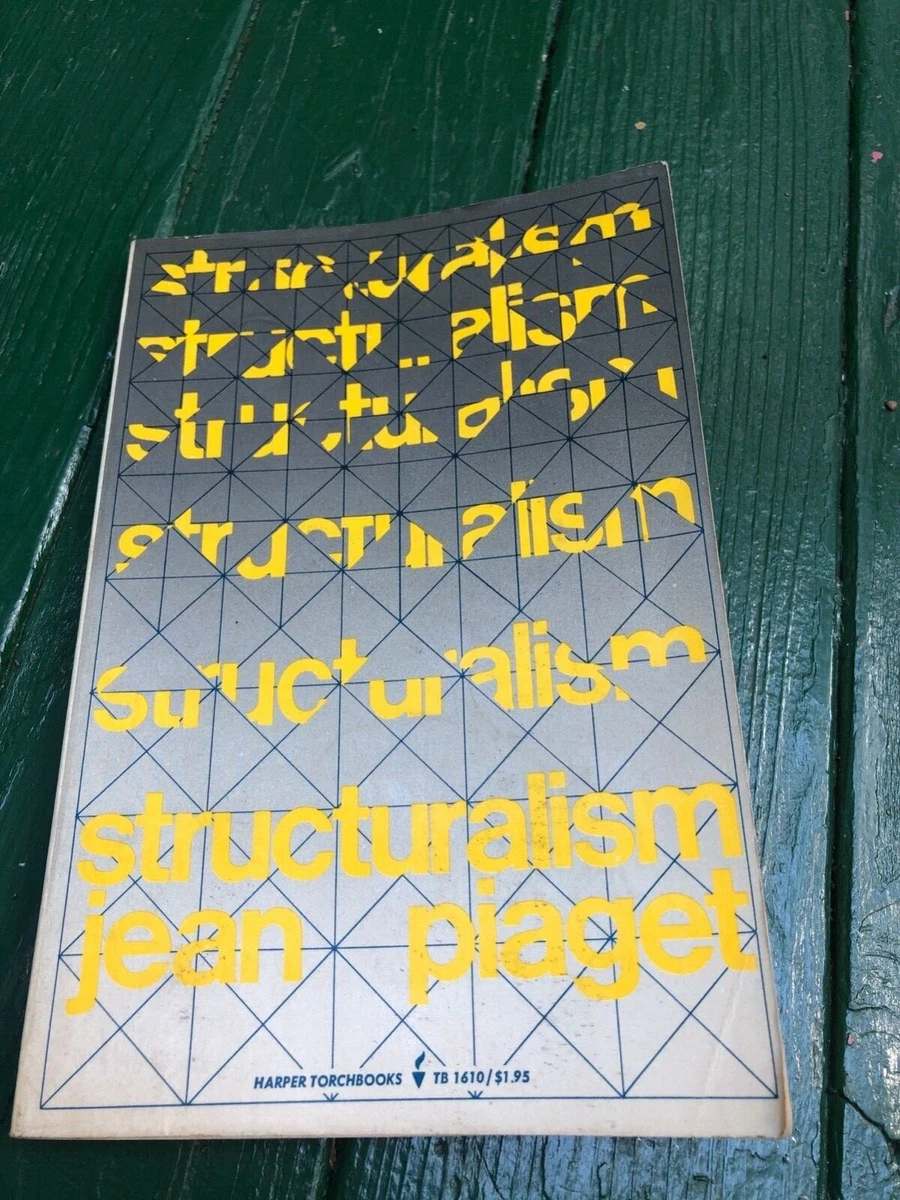 structuralism
structuralism
structuralism
structuralism
structuralism
structuralism
jean piaget
HARPER TORCHBOOKS TB 1610/$1.95